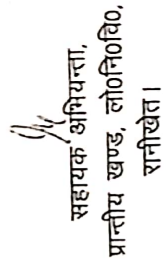 सहायक अभियन्ता,
प्रान्तीय खण्ड, लो०नि०वि०,
रानीखेत।